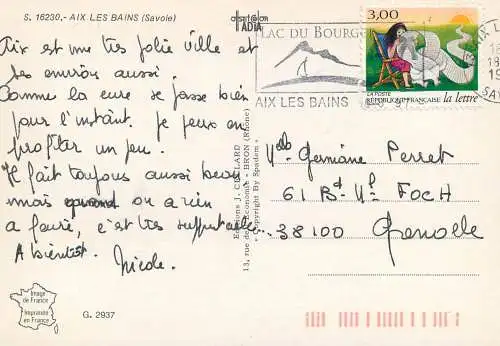 S. 16230.- AIX LES BAINS (Savoie)
Aix est une très jolie ville et
ses environs aussi.
Comme la cure se passe bien
pour l'instant. je peux en
profiter un peu.
Il fait toujours aussi beau
mais quand on a rien
a faire, c'est très supportable...
A bientôt. Nicole.
Image
de France
Imprimée
en France
G. 2937
Editions J. CELLARD
13, rue de l'Economie - BRON (Rhône)
Copyright By Spadem
LAC DU BOURG
AIX LES BAINS
3,00
LA POSTE
RÉPUBLIQUE FRANÇAISE la lettre
AIX L
18
19
SAV
Germaine Perret
61 Bd Ml FOCH
38100 Grenoble